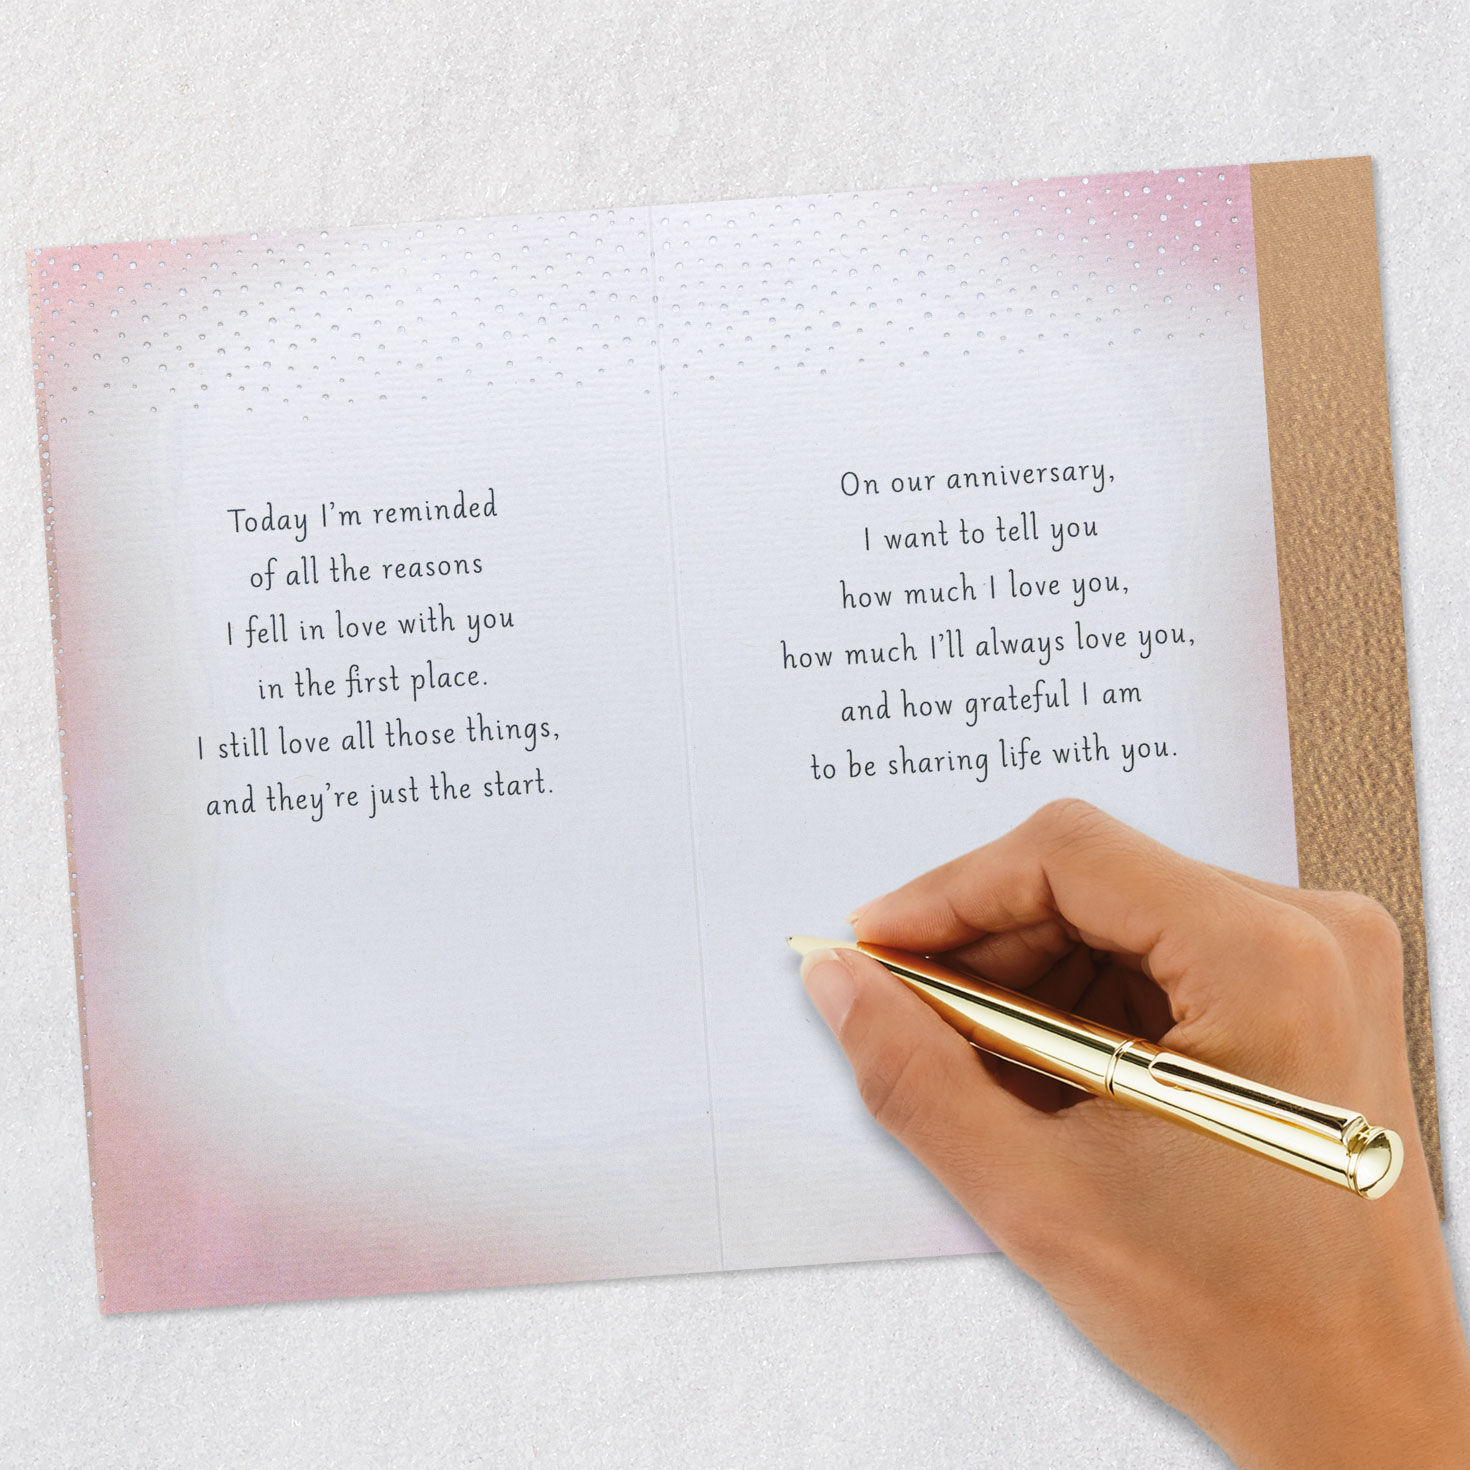 Today I'm reminded
of all the reasons
I fell in love with you
in the first place.
I still love all those things,
and they're just the start.
On our anniversary,
I want to tell you
how much I love you,
how much I'll always love you,
and how grateful I am
to be sharing life with you.